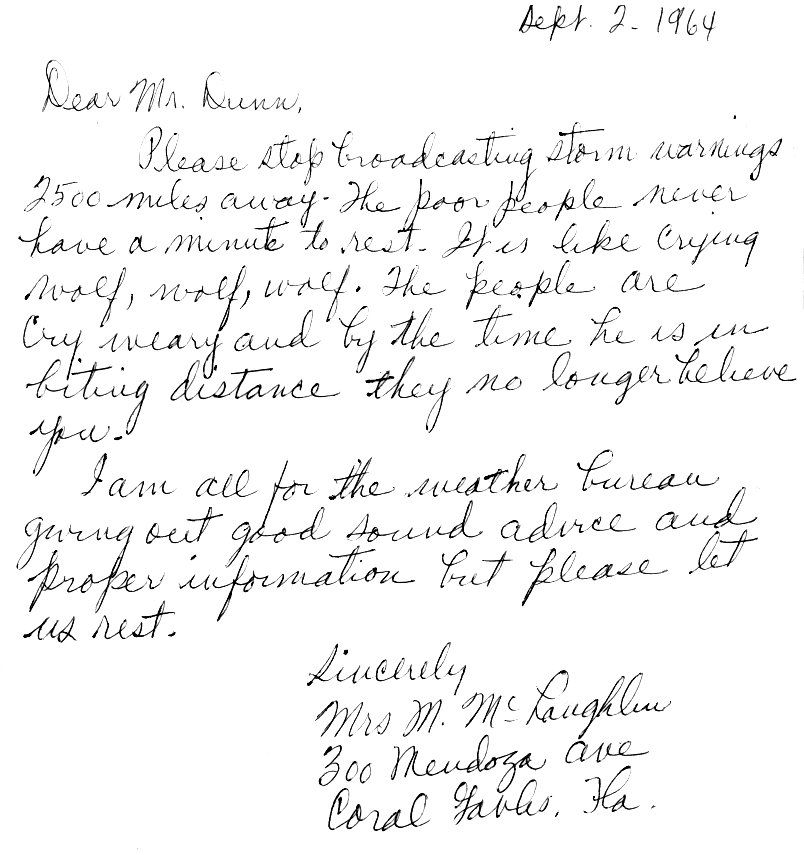 Sept. 2. 1964
Dear Mr. Dunn,
Please stop broadcasting storm warnings
2500 miles away. The poor people never
have a minute to rest. It is like crying
wolf, wolf, wolf. The people are
Cry weary and by the time he is in
biting distance they no longer believe
you.
I am all for the weather bureau
giving out good sound advice and
proper information but please let
us rest.
Sincerely
Mrs M. McLaughlin
300 Mendoza Ave
Coral Gables, Fla.